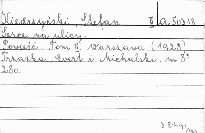 Kiedrzyński, Stefan II a. 50718
Serce na ulicy.
Powieść. Tom II. Warszawa (1928)
Trzaska Evert i Michalski. m 8°
280.